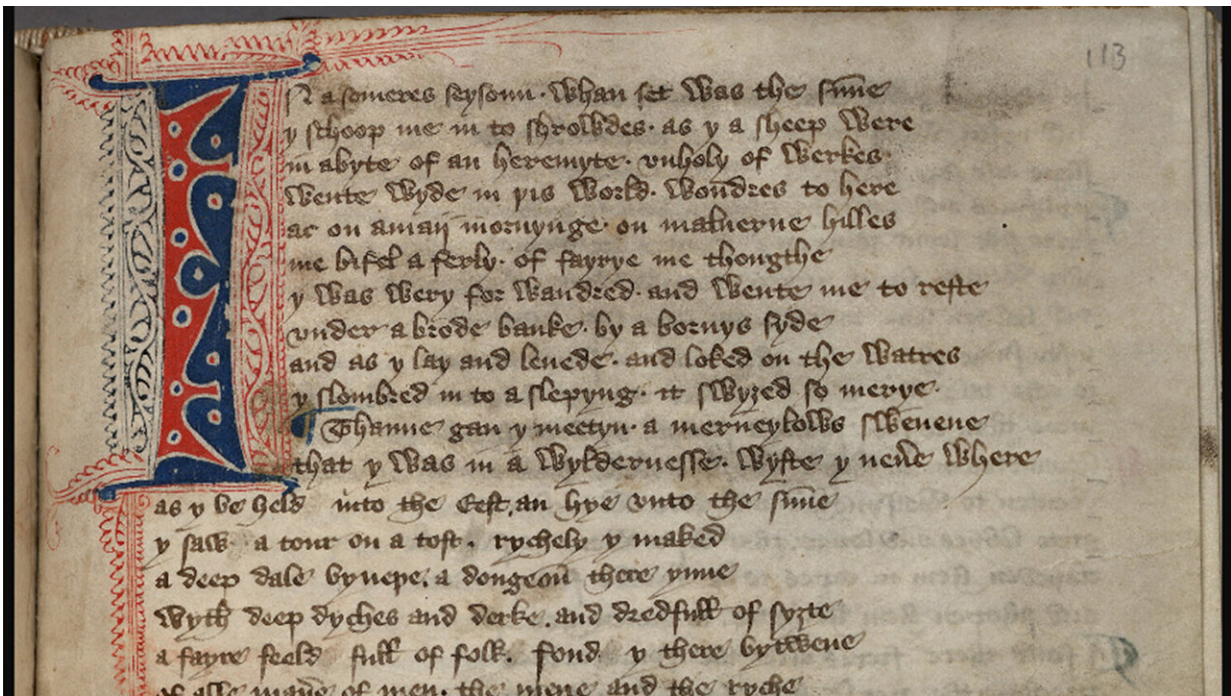 113
IN a someres seysoun · whan set was the sūne
y schoop me in to shrowdes · as y a sheep were
in abyte of an heremyte · vnholy of werkes ·
wente wyde in þis world · wondres to here
ac on amaij mornynge · on maluerne hilles
me bifel a ferly · of fayrye me thougthe
y was wery for wandred · and wente me to reste
vnder a brode banke · by a bornys syde
and as y lay and lenede · and loked on the watres
y slombred in to a slepyng · it swyȝed so merye ·
¶ Thanne gan y meetyn · a merueylows sweuene
that y was in a wyldernesse · wyste y neũe where
as y be held into the Eest, an hye vnto the sūne
y saw a tour on a toft · rychely y maked
a deep dale byneþe, a dongeoū there ynne
wyth deep dyches and derke, and dredfull of syȝte
a fayre feeld full of folk, fond y there bytwene
of alle maně of men · the mene and the ryche